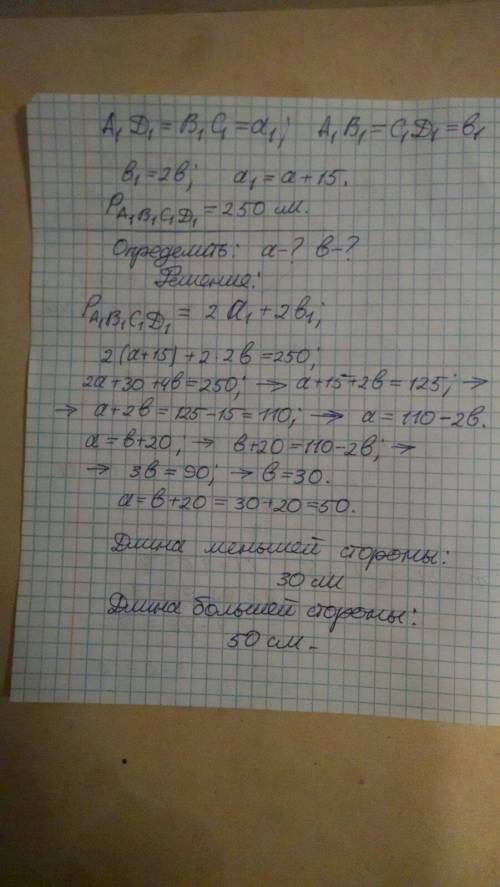 A₁D₁ = B₁C₁ = a₁; A₁B₁ = C₁D₁ = в₁
в₁ = 2в; a₁ = a + 15.
P_A₁B₁C₁D₁ = 250 см.
Определить: a - ? в - ?
Решение:
P_A₁B₁C₁D₁ = 2a₁ + 2в₁;
2(a+15) + 2·2в = 250;
2a + 30 + 4в = 250; → a + 15 + 2в = 125; →
→ a + 2в = 125 - 15 = 110; → a = 110 - 2в.
a = в + 20; → в + 20 = 110 - 2в; →
→ 3в = 90; → в = 30.
a = в + 20 = 30 + 20 = 50.
Длина меньшей стороны:
30 см
Длина большей стороны:
50 см.